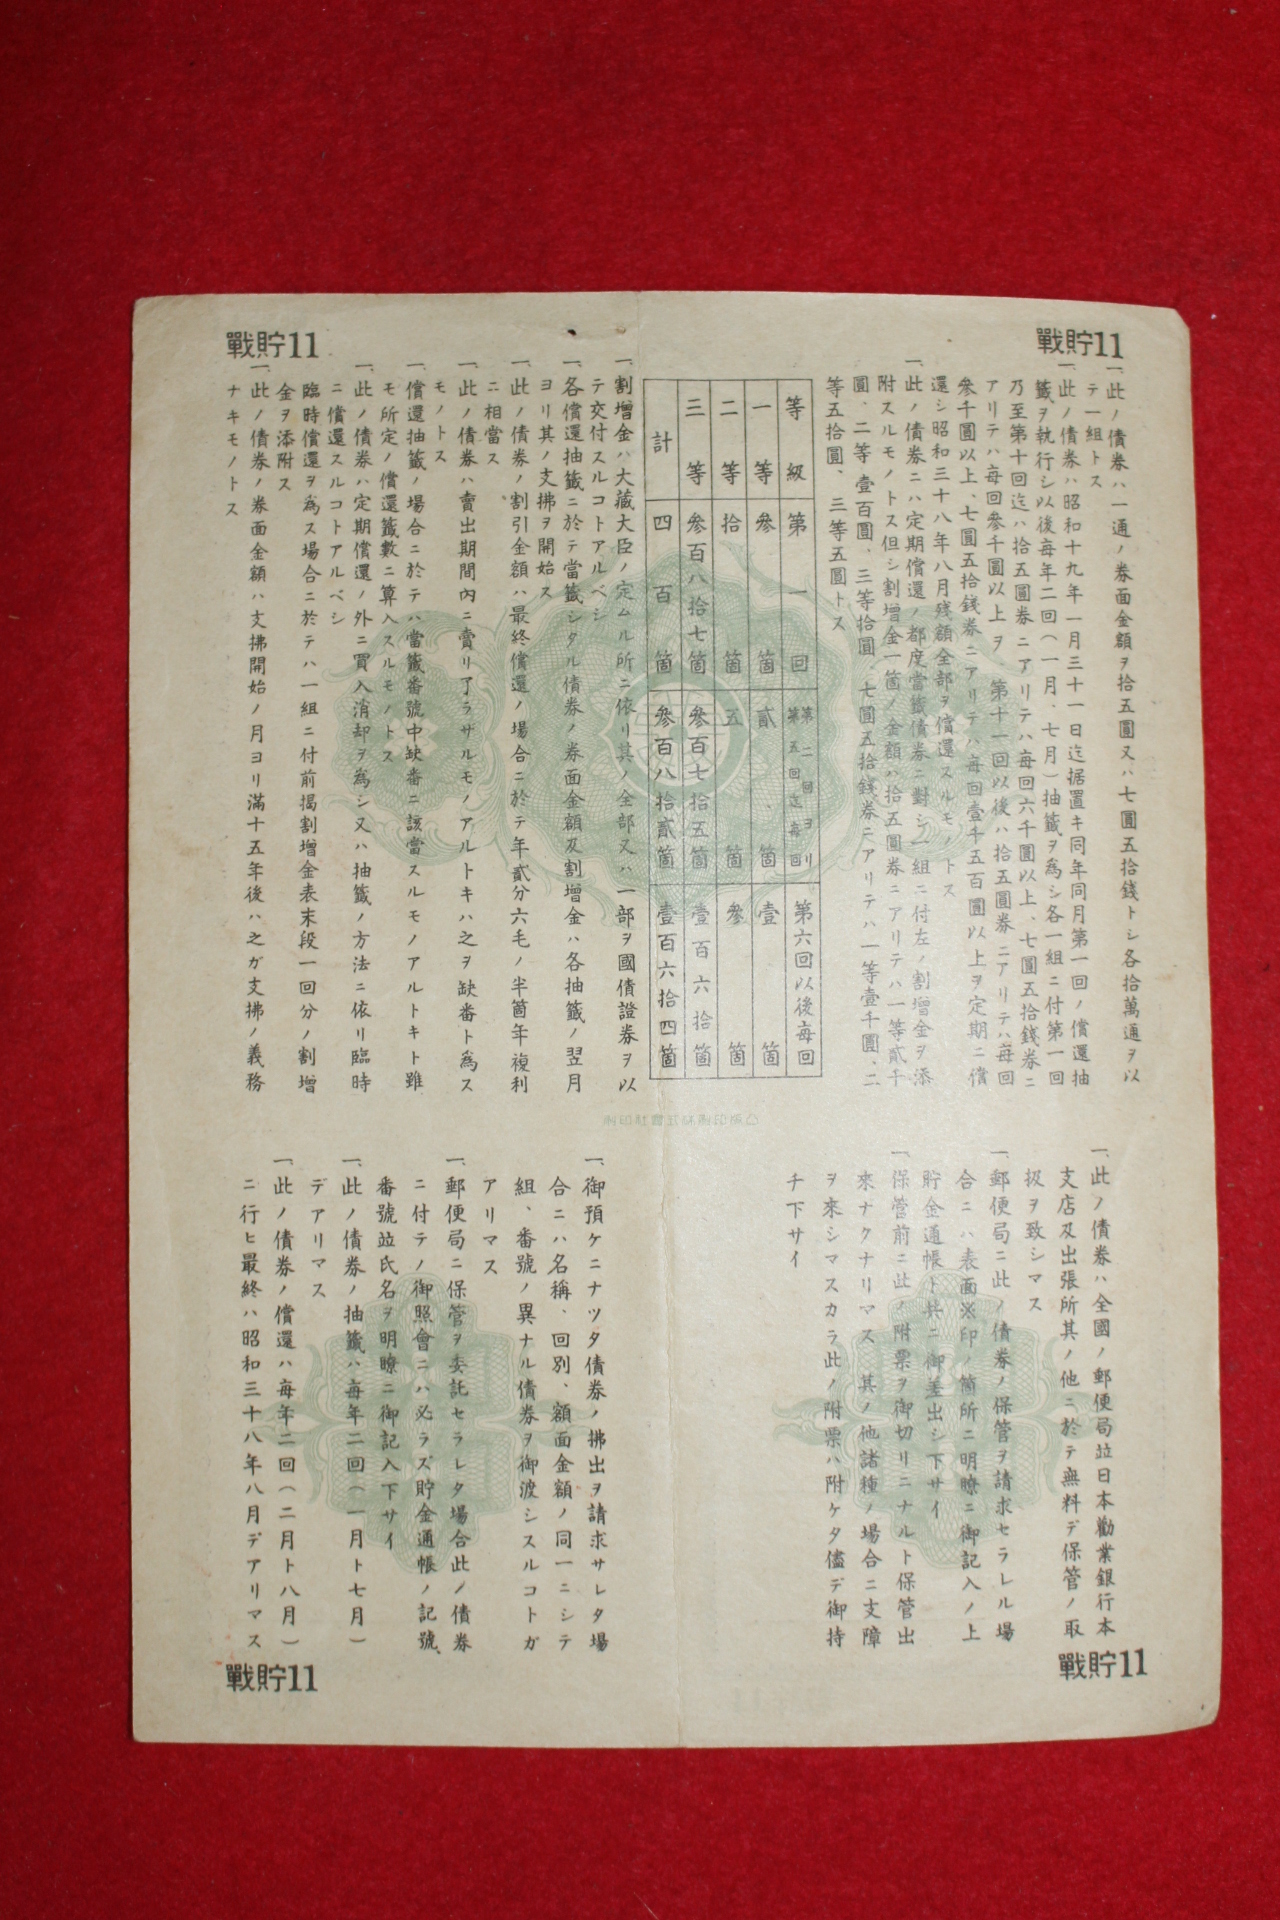 戰貯11
戰貯11
一、此ノ債券ハ一通ノ券面金額ヲ拾五圓又ハ七圓五拾錢トシ各拾萬通ヲ以
テ一組トス
一、此ノ債券ハ昭和十九年一月三十一日迄据置キ同年同月第一回ノ償還抽
籤ヲ執行シ以後每年二回(一月、七月)抽籤ヲ爲シ各一組ニ付第一回
乃至第十回迄ハ拾五圓券ニアリテハ每回六千圓以上、七圓五拾錢券ニ
アリテハ每回參千圓以上ヲ、第十一回以後ハ拾五圓券ニアリテハ每回
參千圓以上、七圓五拾錢券ニアリテハ每回壹千五百圓以上ヲ定期ニ償
還シ昭和三十八年八月殘額全部ヲ償還スルモノトス
一、此ノ債券ニハ定期償還ノ都度當籤債券ニ對シ一組ニ付左ノ割增金ヲ添
附スルモノトス但シ割增金一箇ノ金額ハ拾五圓券ニアリテハ一等貳千
圓、二等壹百圓、三等拾圓、七圓五拾錢券ニアリテハ一等壹千圓、二
等五拾圓、三等五圓トス
等級 第一回 第二回ヨリ第五回迄每回 第六回以後每回
一等 參箇 貳箇 壹箇
二等 拾箇 五箇 參箇
三等 參百八拾七箇 參百七拾五箇 壹百六拾箇
計 四百箇 參百八拾貳箇 壹百六拾四箇
一、割增金ハ大藏大臣ノ定ムル所ニ依リ其ノ全部又ハ一部ヲ國債證券ヲ以
テ交付スルコトアルベシ
一、各償還抽籤ニ於テ當籤シタル債券ノ券面金額及割增金ハ各抽籤ノ翌月
ヨリ其ノ支拂ヲ開始ス
一、此ノ債券ノ割引金額ハ最終償還ノ場合ニ於テ年貳分六毛ノ半箇年複利
ニ相當ス
一、此ノ債券ハ賣出期間內ニ賣リ了ラザルモノアルトキハ之ヲ缺番ト爲ス
モノトス
一、償還抽籤ノ場合ニ於テハ當籤番號中缺番ニ該當スルモノアルトキト雖
モ所定ノ償還籤數ニ算入スルモノトス
一、此ノ債券ハ定期償還ノ外ニ買入消却ヲ爲シ又ハ抽籤ノ方法ニ依リ臨時
ニ償還スルコトアルベシ
臨時償還ヲ爲ス場合ニ於テハ一組ニ付前揭割增金表末段一回分ノ割增
金ヲ添附ス
一、此ノ債券ノ券面金額ハ支拂開始ノ月ヨリ滿十五年後ハ之ガ支拂ノ義務
ナキモノトス
一、此ノ債券ハ全國ノ郵便局竝日本勸業銀行本
支店及出張所其ノ他ニ於テ無料デ保管ノ取
扱ヲ致シマス
一、郵便局ニ此ノ債券ノ保管ヲ請求セラレル場
合ニハ表面※印ノ箇所ニ明瞭ニ御記入ノ上
貯金通帳ト共ニ御差出シ下サイ
一、保管前ニ此ノ附票ヲ御切リニナルト保管出
來ナクナリマス 其ノ他諸種ノ場合ニ支障
ヲ來シマスカラ此ノ附票ハ附ケタ儘デ御持
チ下サイ
一、御預ケニナツタ債券ノ拂出ヲ請求サレタ場
合ニハ名稱、回別、額面金額ノ同一ニシテ
組、番號ノ異ナル債券ヲ御渡シスルコトガ
アリマス
一、郵便局ニ保管ヲ委託セラレタ場合此ノ債券
ニ付テノ御照會ニハ必ラズ貯金通帳ノ記號、
番號竝氏名ヲ明瞭ニ御記入下サイ
一、此ノ債券ノ抽籤ハ每年二回(一月ト七月)
デアリマス
一、此ノ債券ノ償還ハ每年二回(二月ト八月)
ニ行ヒ最終ハ昭和三十八年八月デアリマス
戰貯11
戰貯11